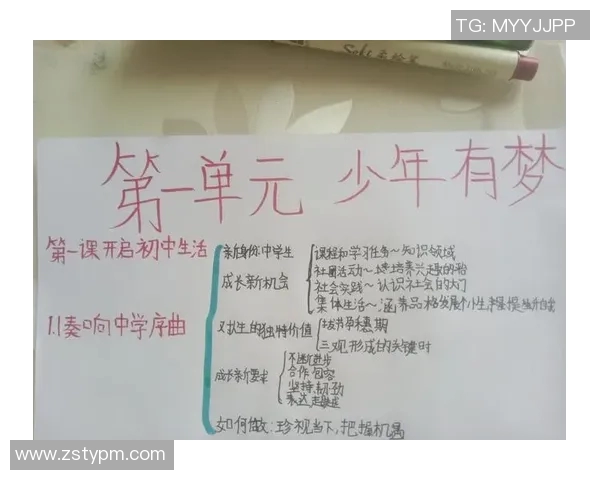 TG: MYYJJPP
第一单元 少年有梦
第一课开启初中生活
1.1奏响中学序曲
新身份:中学生
成长新机会
课程和学习任务~知识领域
社团活动~培养兴趣的
社会实践~认识社会的大门
集体生活~涵养品格发展个性
人生的独特价值
拔节孕穗期
三观形成的关键时
成长新要求
不断进步
合作包容
坚持韧劲
表达
如何做:珍视当下,把握机遇
www.zstypm.com